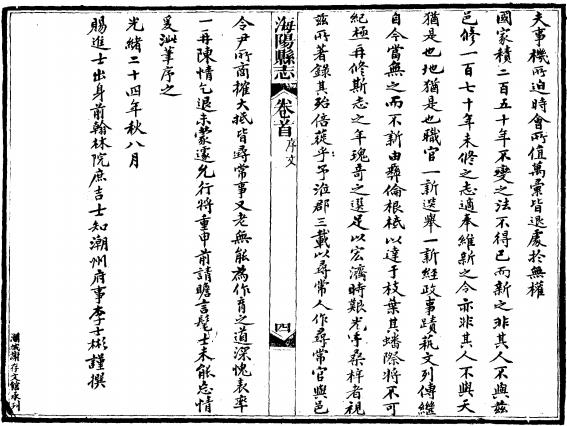 夫事機所迫時會所值萬彙皆退處於無權
國家積二百五十年不變之法不得已而新之非其人不與茲
邑修一百七十年未修之志適奉維新之令亦非其人不與天
猶是也地猶是也職官一新選舉一新經政事蹟藝文列傳繼
自今當無之而不新由彝倫根柢以達于枝葉其蟠際將不可
紀極再修斯志之年瑰奇之選足以宏濟時艱光乎桑梓者視
茲所著錄其殆倍蓰乎予涖郡三載以尋常人作尋常官與邑
海陽縣志
卷首
序文
四
令尹所商榷大抵皆尋常事又老無能為作育之道深愧表率
一再陳情乞退未蒙遽允行將重申前請瞻言髦士未能忘情
爰泚筆序之
光緒二十四年秋八月
賜進士出身前翰林院庶吉士知潮州府事李士彬謹撰
潮城謝存文館承刊